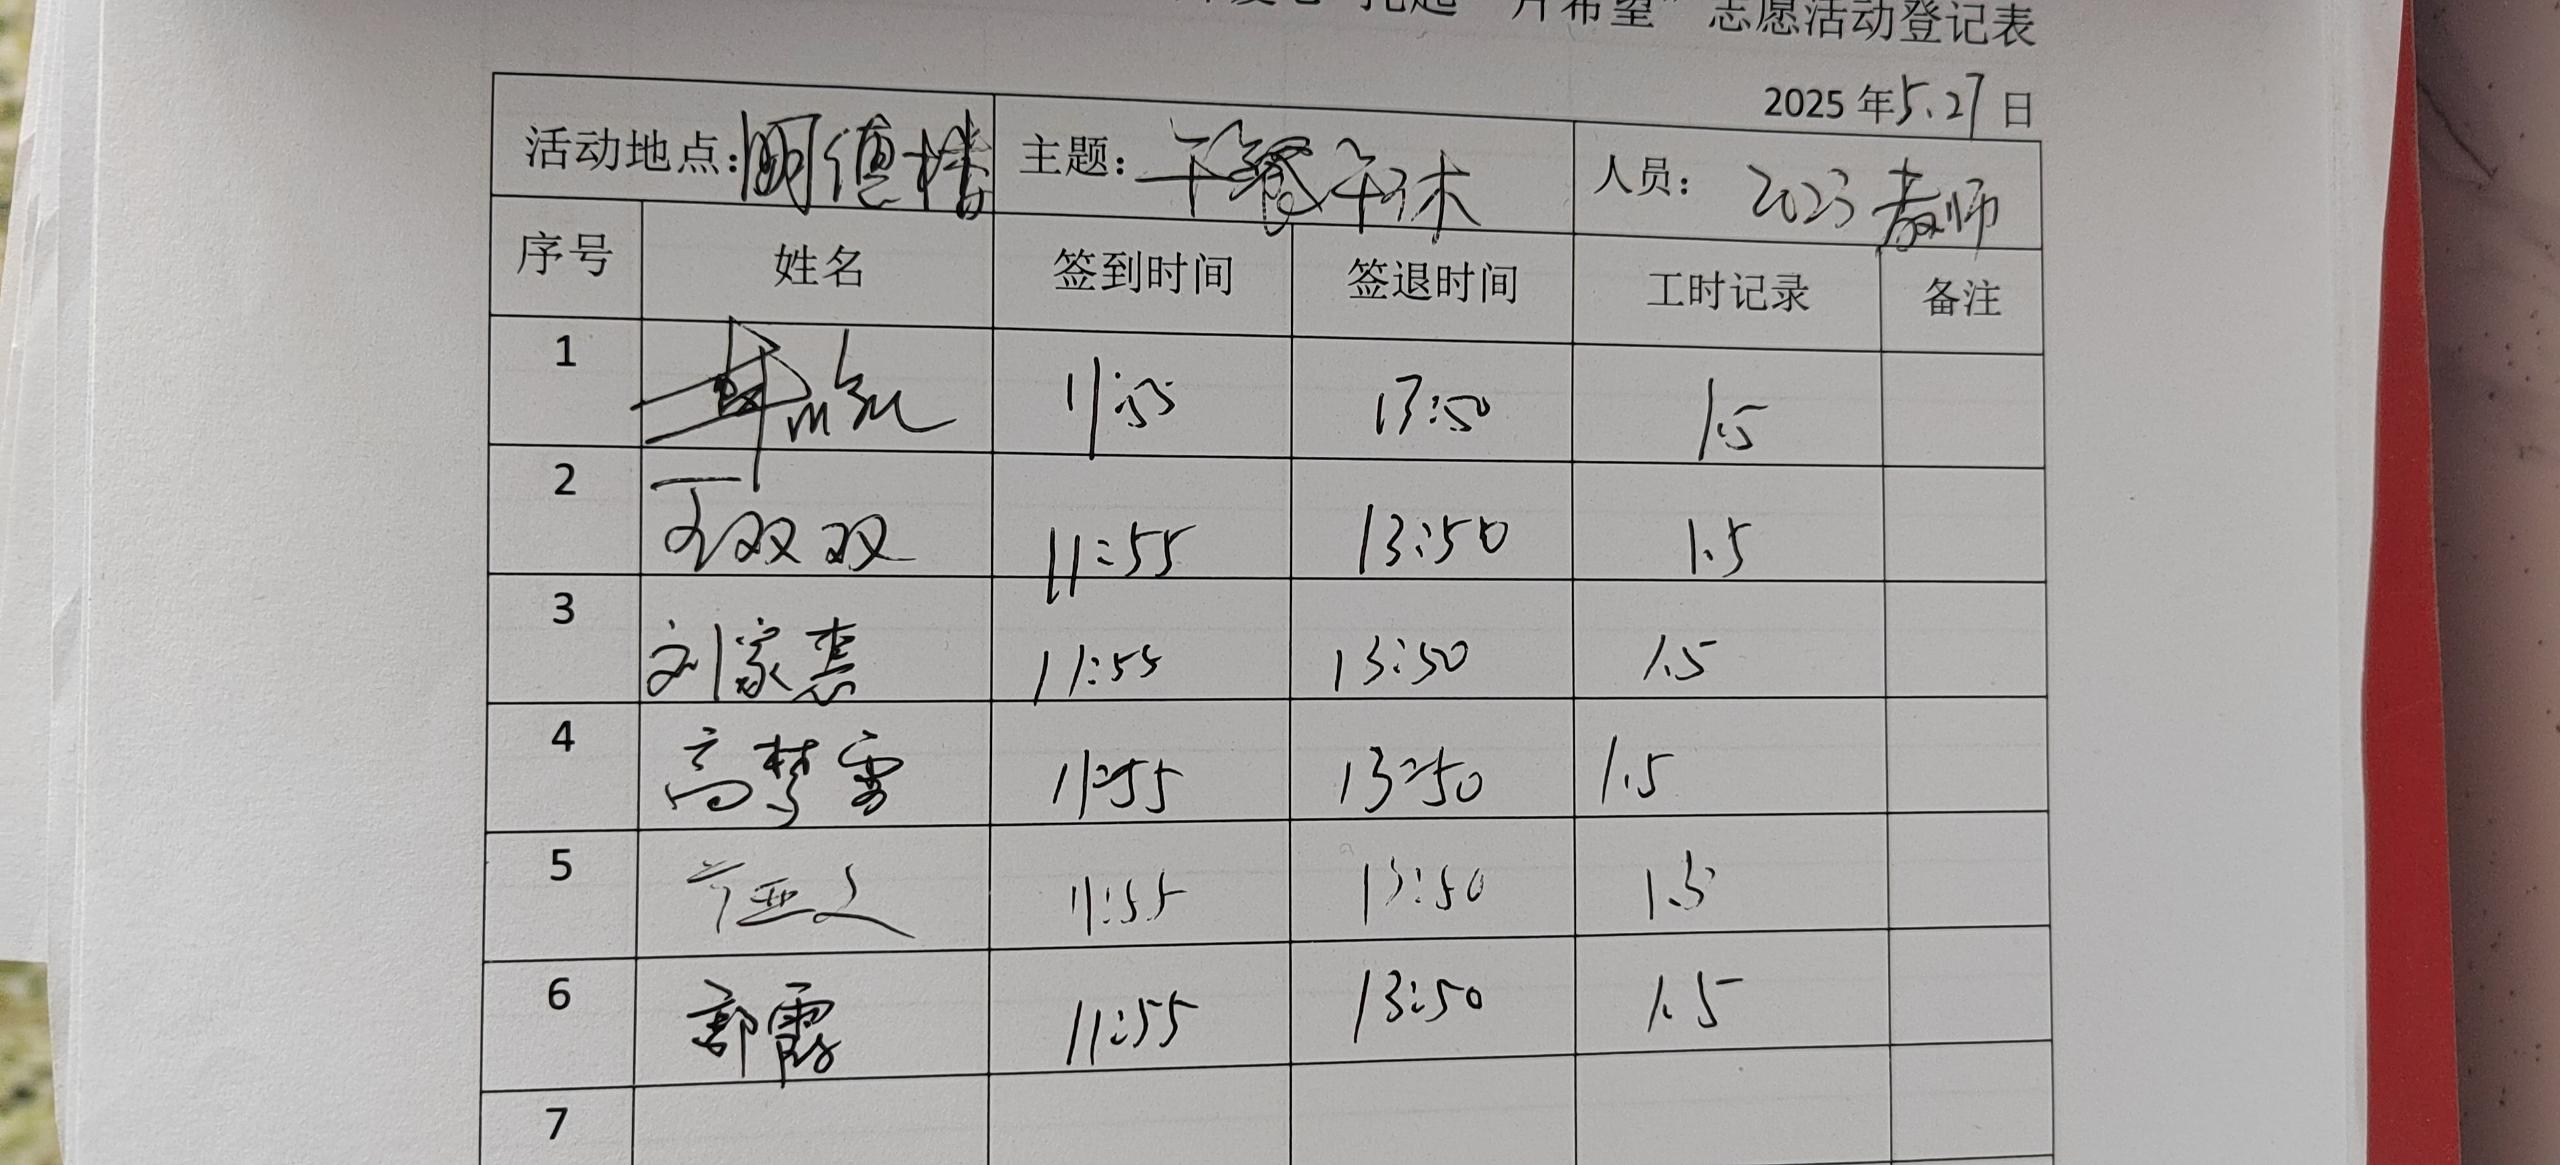 托起“片希望”志愿活动登记表
2025年5.27日
活动地点:明德楼 主题:午餐午休 人员: 2023教师
序号 姓名 签到时间 签退时间 工时记录 备注
1 11:55 13:50 1.5
2 王双双 11:55 13:50 1.5
3 刘家惠 11:55 13:50 1.5
4 高梦雪 11:55 13:50 1.5
5 11:55 13:50 1.5
6 郭霞 11:55 13:50 1.5
7